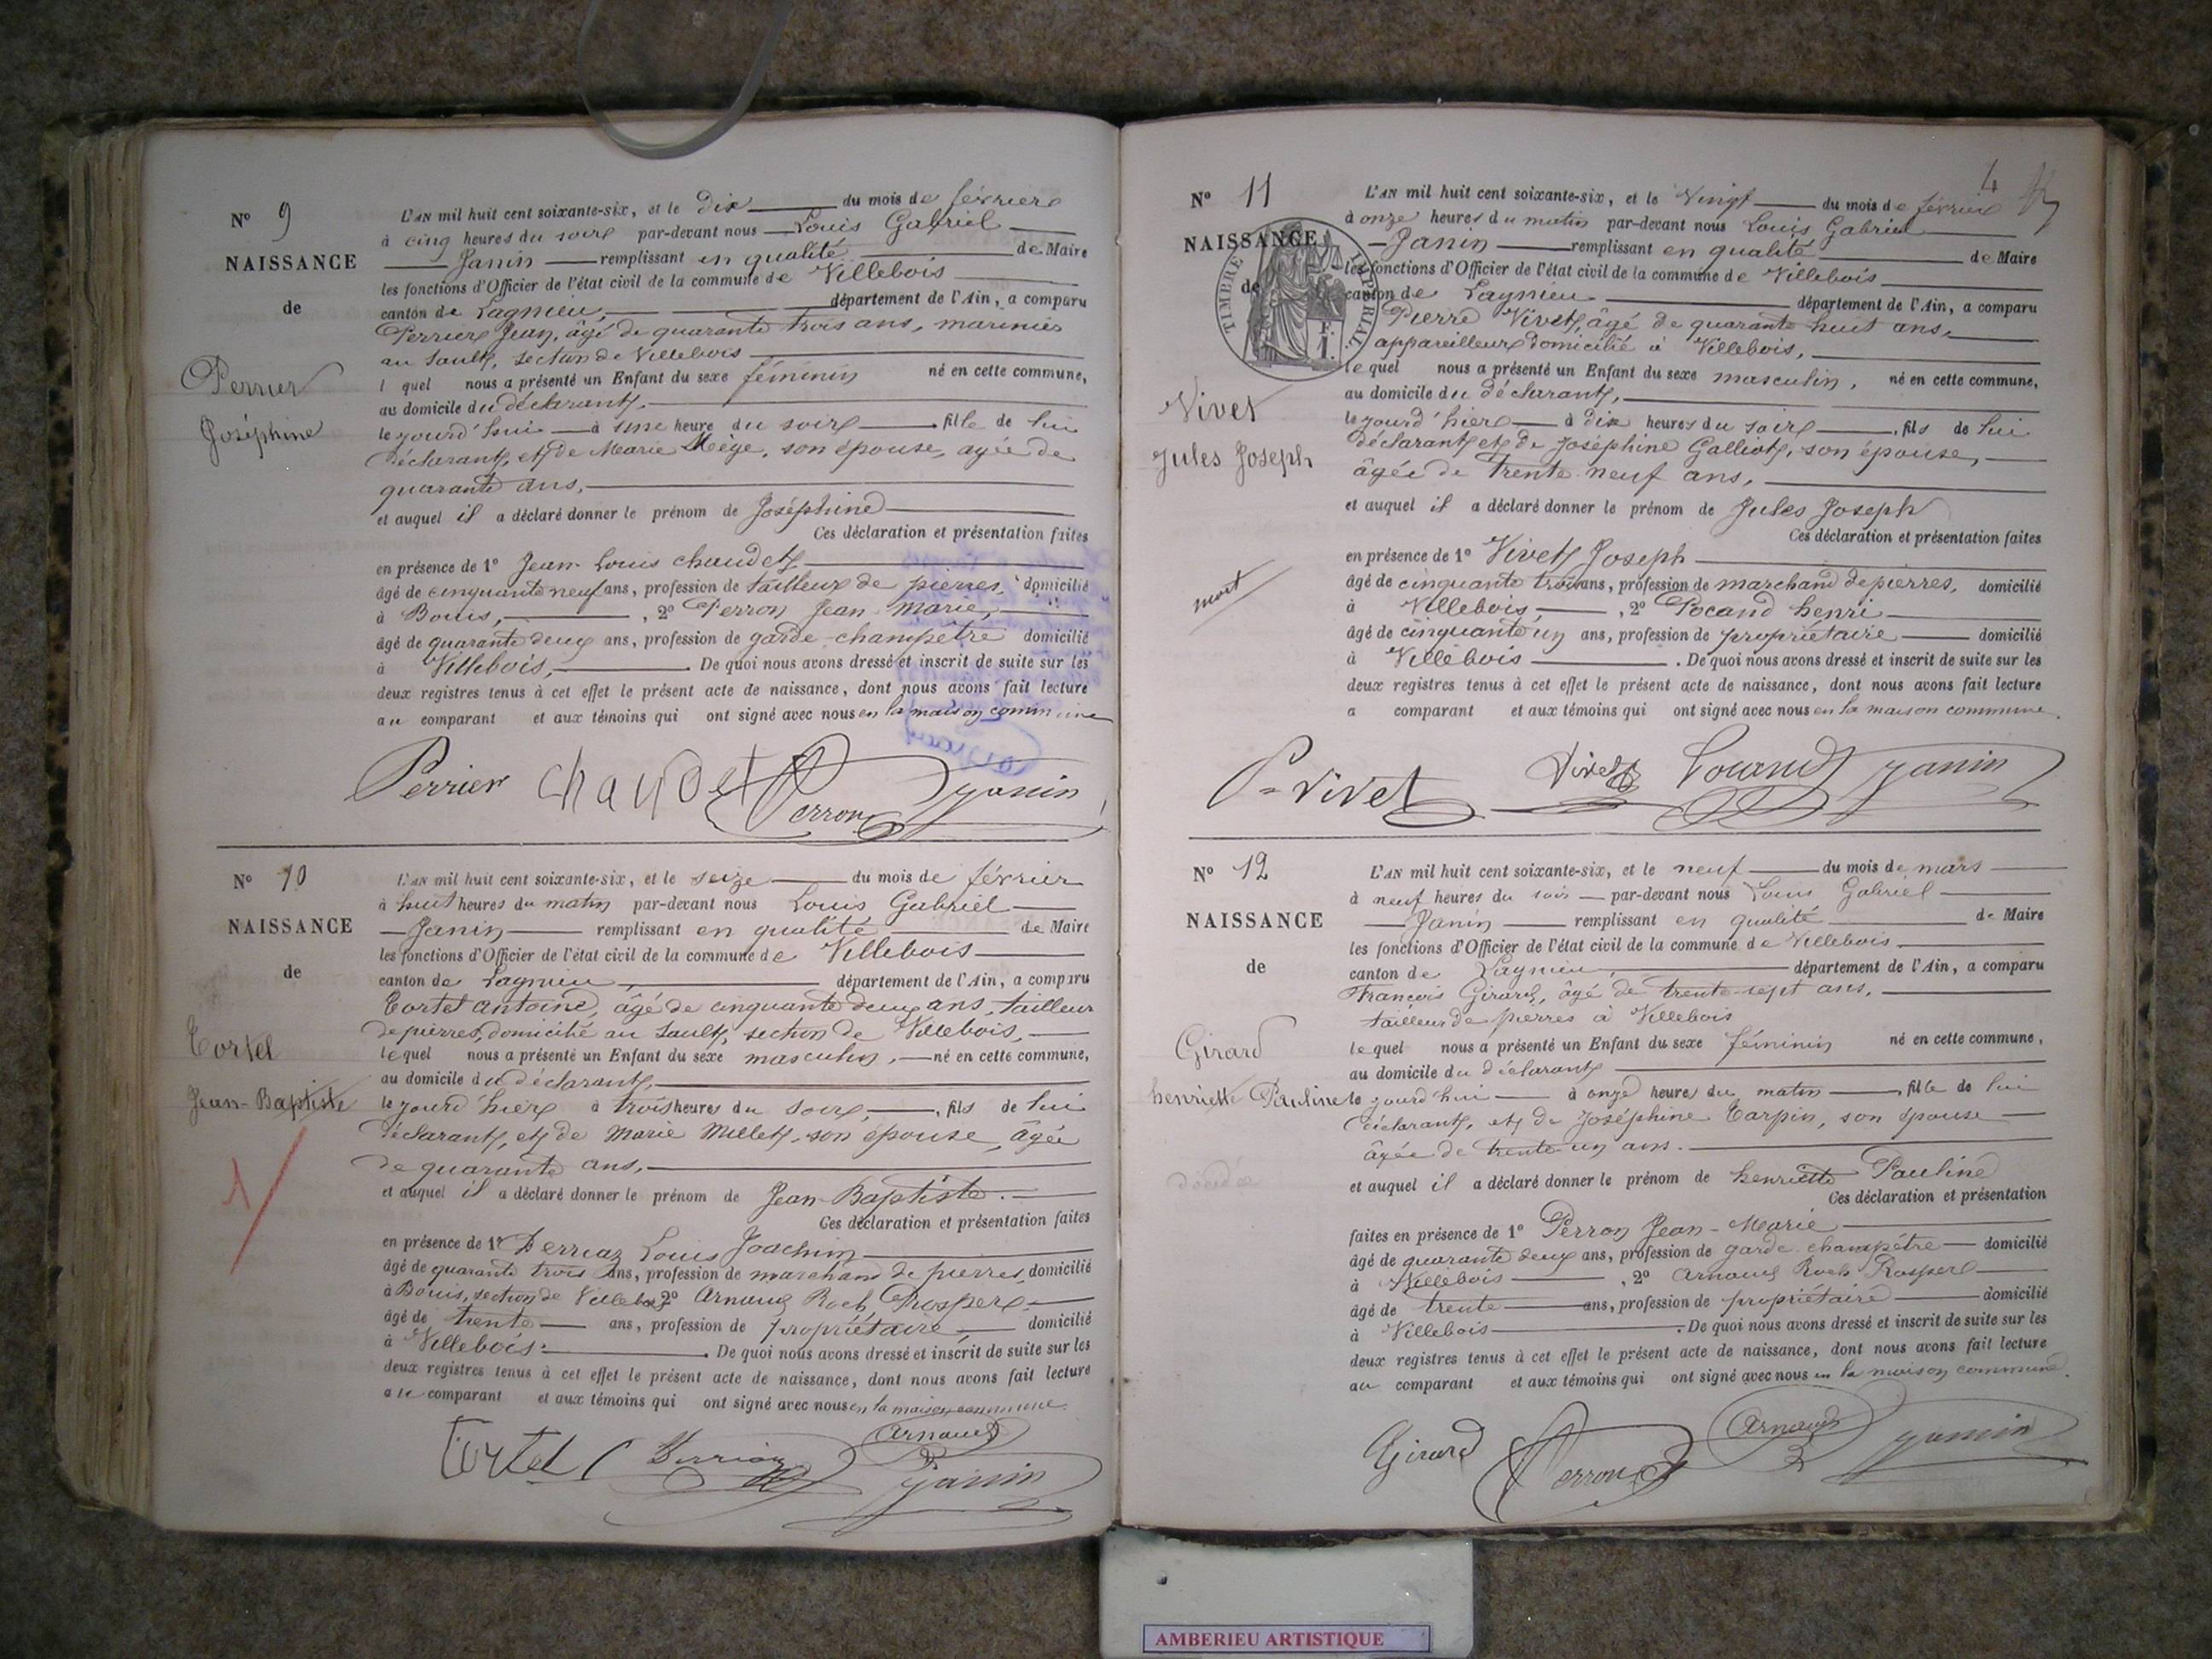 N° 9
NAISSANCE
de
Perrier
Joséphine
L'AN mil huit cent soixante-six, et le dix du mois de février
à cinq heures du soir par-devant nous Louis Gabriel
Janin remplissant en qualité de Maire
les fonctions d'Officier de l'état civil de la commune de Villebois
canton de Lagnieu, département de l'Ain, a comparu
Perrier Jean, âgé de quarante trois ans, marinier
au Sault, section de Villebois
l quel nous a présenté un Enfant du sexe féminin né en cette commune,
au domicile du déclarant,
le jourd'hui à une heure du soir fille de lui
déclarant, et de Marie Mège, son épouse, agée de
quarante ans,
et auquel il a déclaré donner le prénom de Joséphine
Ces déclaration et présentation faites
en présence de 1° Jean-Louis Chaudet
âgé de cinquante neuf ans, profession de tailleur de pierres, domicilié
à Bouis, 2° Perron Jean Marie,
âgé de quarante deux ans, profession de garde-champêtre domicilié
à Villebois, De quoi nous avons dressé et inscrit de suite sur les
deux registres tenus à cet effet le présent acte de naissance, dont nous avons fait lecture
au comparant et aux témoins qui ont signé avec nous en la maison commune
Perrier Chaudet Perron Janin
N° 10
NAISSANCE
de
Tortel
Jean-Baptiste
L'AN mil huit cent soixante-six, et le seize du mois de février
à huit heures du matin par-devant nous Louis Gabriel
Janin remplissant en qualité de Maire
les fonctions d'Officier de l'état civil de la commune de Villebois
canton de Lagnieu, département de l'Ain, a comparu
Tortel Antoine, âgé de cinquante deux ans, tailleur
de pierres, domicilié au Sault, section de Villebois,
le quel nous a présenté un Enfant du sexe masculin, né en cette commune,
au domicile du déclarant,
le jourd'hier à trois heures du soir, fils de lui
déclarant, et de Marie Millet, son épouse, âgée
de quarante ans,
et auquel il a déclaré donner le prénom de Jean-Baptiste.
Ces déclaration et présentation faites
en présence de 1° Derriaz Louis Joachim
âgé de quarante trois ans, profession de marchand de pierres, domicilié
à Bouis, section de Villebois 2° Arnaud Roch Prosper
âgé de trente ans, profession de propriétaire, domicilié
à Villebois. De quoi nous avons dressé et inscrit de suite sur les
deux registres tenus à cet effet le présent acte de naissance, dont nous avons fait lecture
au comparant et aux témoins qui ont signé avec nous en la maison commune.
Tortel Derriaz Arnaud Janin
4
N° 11
NAISSANCE
de
TIMBRE IMPÉRIAL
Vivet
Jules Joseph
mort
L'AN mil huit cent soixante-six, et le vingt du mois de février
à onze heures du matin par-devant nous Louis Gabriel
Janin remplissant en qualité de Maire
les fonctions d'Officier de l'état civil de la commune de Villebois
canton de Lagnieu département de l'Ain, a comparu
Pierre Vivet, âgé de quarante huit ans,
appareilleur domicilié à Villebois,
le quel nous a présenté un Enfant du sexe masculin, né en cette commune,
au domicile du déclarant,
le jourd'hier à dix heures du soir, fils de lui
déclarant et de Joséphine Galliot, son épouse,
âgée de trente neuf ans,
et auquel il a déclaré donner le prénom de Jules Joseph
Ces déclaration et présentation faites
en présence de 1° Vivet Joseph
âgé de cinquante trois ans, profession de marchand de pierres, domicilié
à Villebois, 2° Pocand henri
âgé de cinquante un ans, profession de propriétaire domicilié
à Villebois. De quoi nous avons dressé et inscrit de suite sur les
deux registres tenus à cet effet le présent acte de naissance, dont nous avons fait lecture
a comparant et aux témoins qui ont signé avec nous en la maison commune.
P. Vivet Vivet Pocand Janin
N° 12
NAISSANCE
de
Girard
henriette Pauline
décédée
L'AN mil huit cent soixante-six, et le neuf du mois de mars
à neuf heures du soir par-devant nous Louis Gabriel
Janin remplissant en qualité de Maire
les fonctions d'Officier de l'état civil de la commune de Villebois
canton de Lagnieu, département de l'Ain, a comparu
François Girard, âgé de trente-sept ans,
tailleur de pierres à Villebois
le quel nous a présenté un Enfant du sexe féminin né en cette commune,
au domicile du déclarant
le jourd'hui à onze heures du matin fille de lui
déclarant, et de Joséphine Tarpin, son épouse
âgée de trente un ans.
et auquel il a déclaré donner le prénom de henriette Pauline
Ces déclaration et présentation
faites en présence de 1° Perron Jean-Marie
âgé de quarante deux ans, profession de garde champêtre domicilié
à Villebois, 2° Arnaud Roch Prosper
âgé de trente ans, profession de propriétaire domicilié
à Villebois. De quoi nous avons dressé et inscrit de suite sur les
deux registres tenus à cet effet le présent acte de naissance, dont nous avons fait lecture
au comparant et aux témoins qui ont signé avec nous en la maison commune.
Girard Perron Arnaud Janin
AMBERIEU ARTISTIQUE